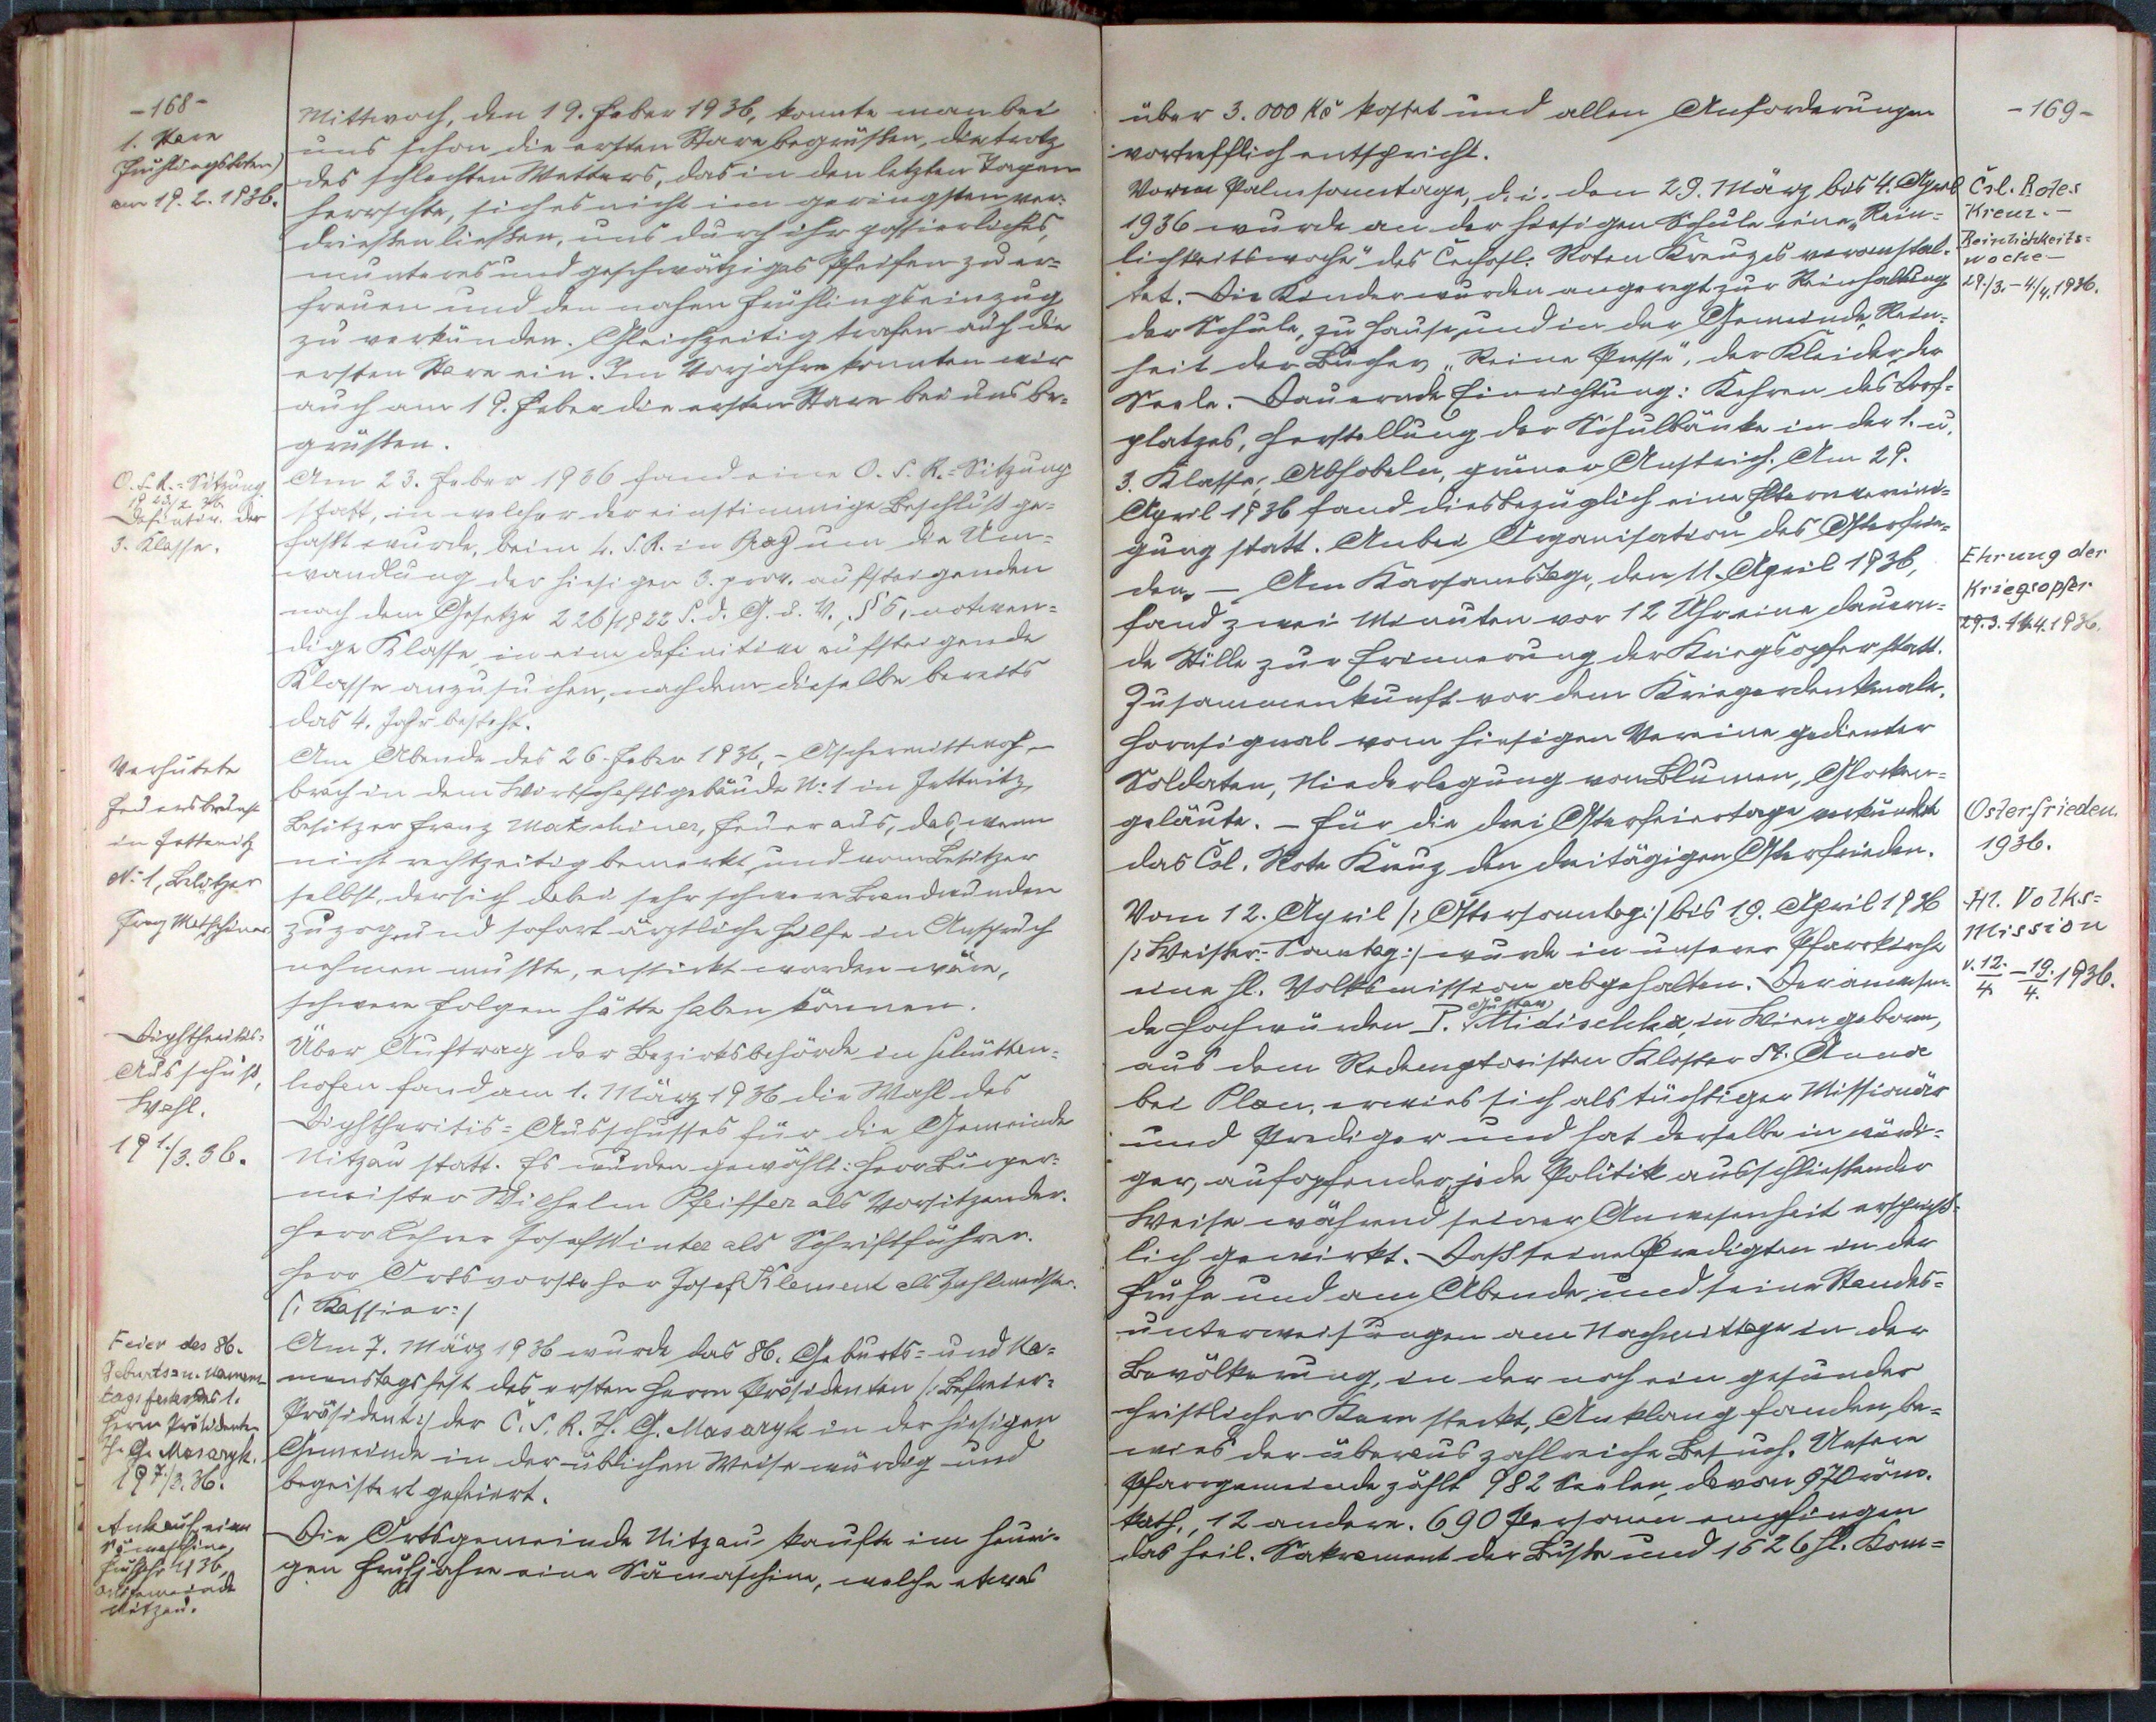 -168-
1. Stare
Frühlingsboten)
am 19.2.1936.
Mittwoch, den 19. Feber 1936, konnte man bei
uns schon die ersten Stare begrüßen, die trotz
des schlechten Wetters, das in den letzten Tagen
herrschte, sich es nicht im geringsten ver-
drießen ließen, uns durch ihr possierliches,
munteres und geschwätziges Pfeifen zu er-
freuen und den nahen Frühlingseinzug
zu verkünden. Gleichzeitig trafen auch die
ersten Stare ein. Im Vorjahre konnten wir
auch am 19. Feber die ersten Stare bei uns be-
grüßen.
O.S.R.=Sitzung
19 23/2 36
Definitiv. der
3. Klasse.
Am 23. Feber 1936 fand eine O.S.R.=Sitzung
statt, in welcher der einstimmige Beschluß ge-
faßt wurde, beim L.S.R. in Prag um die Um-
wandlung der hiesigen 3. prov. aufsteigenden
nach dem Gesetze 226/1922 S.d.G.u.V., §5, notwen-
dige Klasse, in eine definitive aufsteigende
Klasse anzusuchen, nachdem dieselbe bereits
das 4. Jahr besteht.
Verhütete
Feuersbrunst
in Jettenitz
No: 1, Besitzer
Franz Matschiner
Am Abende des 26. Feber 1936, - Aschermittwoch, -
brach in dem Wirtschaftsgebäude N: 1 in Jettenitz,
Besitzer Franz Matschiner, Feuer aus, das, wenn
nicht rechtzeitig bemerkt, und vom Besitzer
selbst, der sich dabei sehr schwere Brandwunden
zuzog und sofort ärztliche Hilfe in Anspruch
nehmen mußte, erstickt worden wäre,
schwere Folgen hätte haben können.
Diphtheritis-
Ausschuß,
Wahl.
19 1./3. 36.
Über Auftrag der Bezirksbehörde in Schütten-
hofen fand am 1. März 1936 die Wahl des
Diphtheritis=Ausschusses für die Gemeinde
Nitzau statt. Es wurden gewählt: Herr Bürger-
meister Wilhelm Pfeiffer als Vorsitzender.
Herr Lehrer Josef Winter als Schriftführer.
Herr Ortsvorsteher Josef Klement als Zahlmeister.
/: Kassier :/
Feier des 86.
Geburts= u. Namens-
tagsfestes des 1.
Herrn Präsidenten
Th. G. Masaryk.
19 7./3. 36.
Am 7. März 1936 wurde das 86. Geburts= und Na-
menstagsfest des ersten Herrn Präsidenten /: Befreier-
Präsident :/ der Č.S.R. Th. G. Masaryk in der hiesigen
Gemeinde in der üblichen Weise würdig und
begeistert gefeiert.
Ankauf einer
Sämaschine,
Frühjahr 1936,
Ortsgemeinde
Nitzau.
Die Ortsgemeinde Nitzau kaufte im heuri-
gen Frühjahre eine Sämaschine, welche etwas
-169-
über 3.000 Kč kostet und allen Anforderungen
vortrefflich entspricht.
Čsl. Rotes
Kreuz.-
Reinlichkeits=
woche-
29./3.-4./4. 1936.
Vom Palmsonntage, d.i. den 29. März bis 4. April
1936 wurde an der hiesigen Schule eine „Rein-
lichkeitswoche" des Čechosl. Roten Kreuzes veranstal-
tet. Die Kinder wurden angeregt zur Reinhaltung
der Schule, zu Hause und in der Gemeinde, Rein-
heit der Bücher „Reine Presse", der Kleider, der
Seele. Dauernde Einrichtung: Kehren des Dorf-
platzes, Herstellung der Schulbänke in der 1. u.
3. Klasse, Abhobeln, grüner Anstrich. Am 29.
April 1936 fand diesbezüglich eine Elternvereini-
gung statt. Anbei Organisation des Osterfrie-
den. - Am Karsamstage, den 11. April 1936,
fand zwei Minuten vor 12 Uhr eine dauern-
de Stille zur Erinnerung der Kriegsopfer statt.
Zusammenkunft vor dem Kriegerdenkmale,
Hornsignal vom hiesigen Vereine gedienter
Soldaten, Niederlegung von Blumen, Glocken-
geläute. - Für die drei Osterfeiertage verkündet
das Čsl. Rote Kreuz den dreitägigen Osterfrieden.
Ehrung der
Kriegsopfer
Osterfrieden
1936.
Hl. Volks=
Mission
v. 12./4. - 19./4. 1936.
Vom 12. April /: Ostersonntag :/ bis 19. April 1936
/: Weißer=Sonntag :/ wurde in unserer Pfarrkirche
eine hl. Volksmission abgehalten. Der anwesen-
de Hochwürden P. Gustav Midischka, in Wien geboren,
aus dem Redemptoristen Kloster St. Anna
bei Plan, erwies sich als tüchtiger Missionär
und Prediger und hat derselbe in würdi-
ger, aufopfernder, jede Politik ausschließender
Weise während seiner Anwesenheit ersprieß-
lich gewirkt. Daß seine Predigten in der
Frühe und am Abende und seine Standes-
unterweisungen am Nachmittage in der
Bevölkerung, in der noch ein gesunder
christlicher Kern steckt, Anklang fanden, be-
wies der überaus zahlreiche Besuch. Unsere
Pfarrgemeinde zählt 982 Seelen, davon 970 röm.
kath., 12 andere. 690 Personen empfingen
das heil. Sakrament der Buße und 1526 hl. Kom=